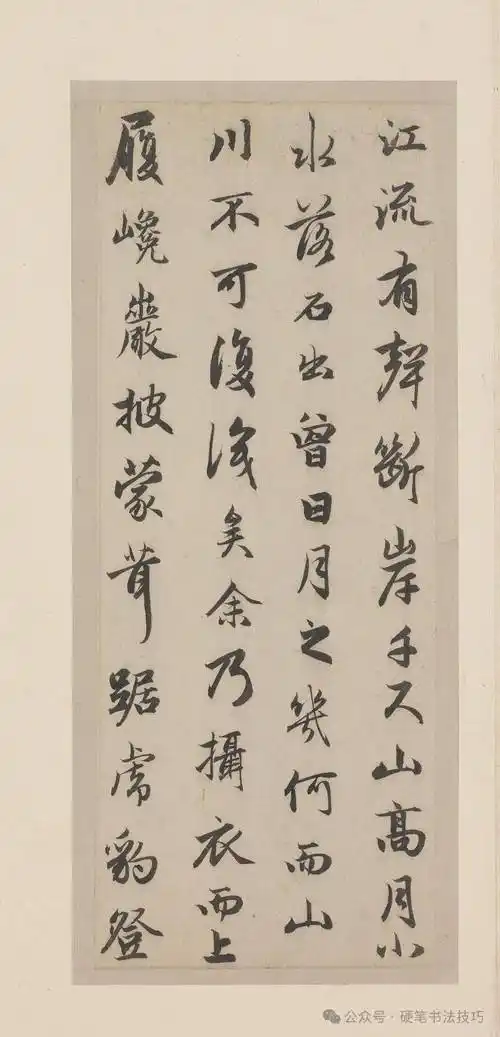 江流有聲斷岸千尺山高月小
水落石出曾日月之幾何而山
川不可復識矣余乃攝衣而上
履巉巖披蒙茸踞虎豹登
公众号·硬笔书法技巧